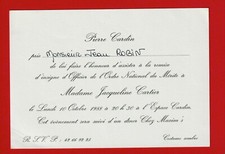 Pierre Cardin
prie Monsieur Jean ROBIN
de lui faire l'honneur d'assister à la remise
d'insignes d'Officier de l'Ordre National du Mérite à
Madame Jacqueline Cartier
le Lundi 10 Octobre 1988 à 20 h 30 à l'Espace Cardin
Cet évènement sera suivi d'un dîner Chez Maxim's
R. S. V. P.